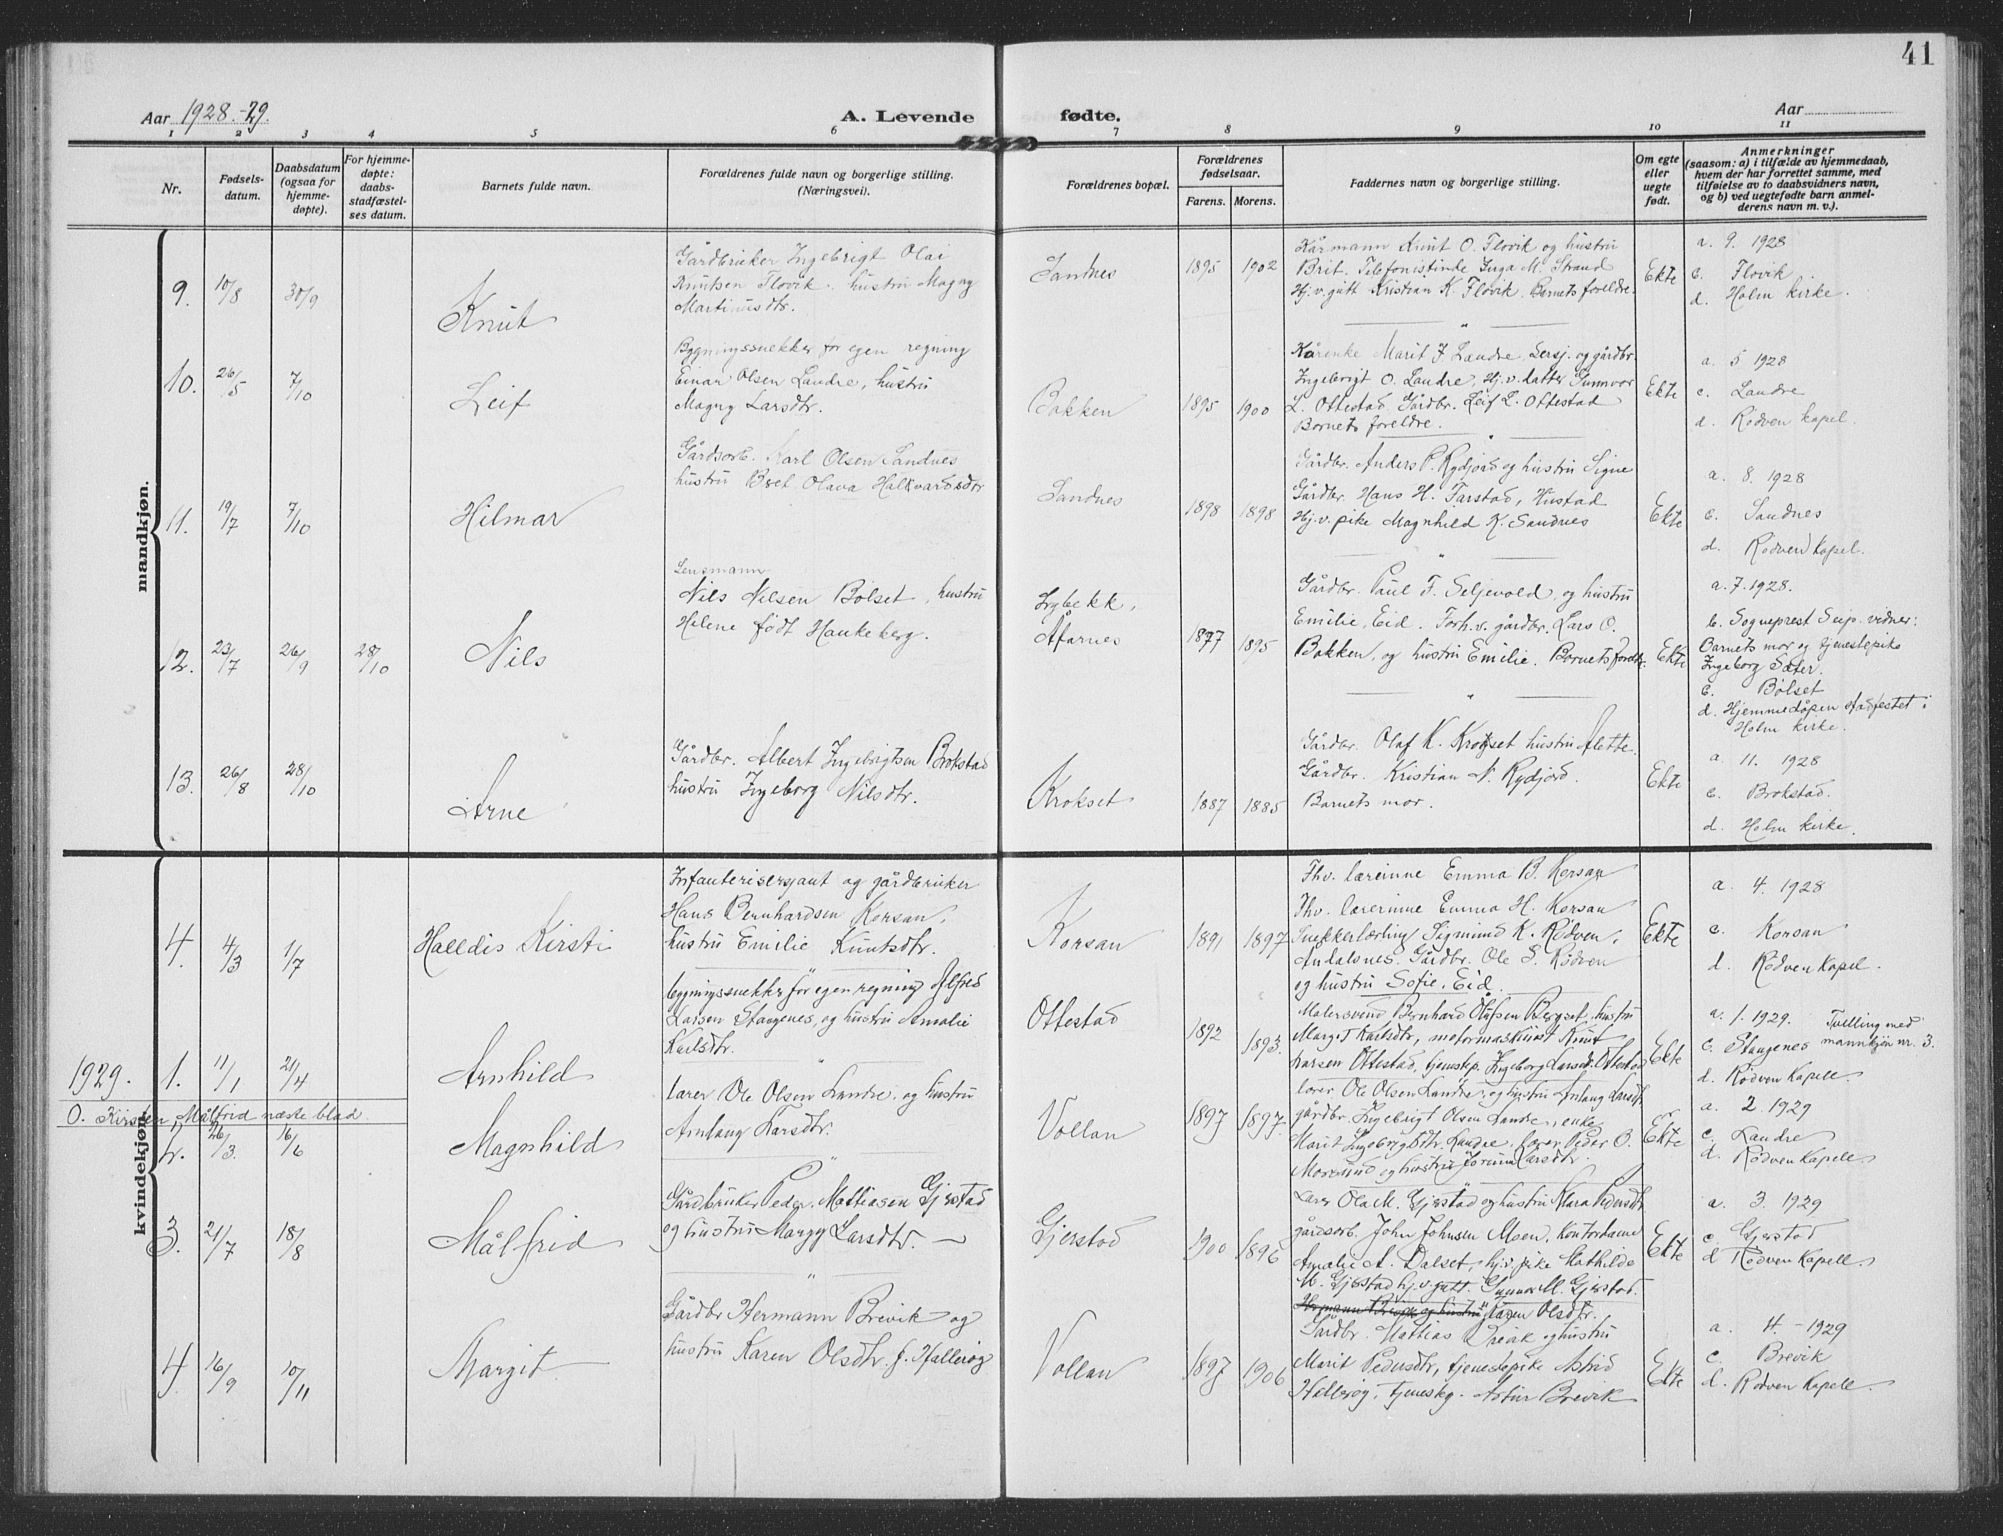 41
Aar 1928.-29.
A. Levende fødte.
Aar
1 2 3 4 5 6 7 8 9 10 11
Nr.
Fødsels-
datum.
Daabsdatum
(ogsaa for
hjemme-
døpte).
For hjemme-
døpte:
daabs-
stadfæstel-
ses datum.
Barnets fulde navn.
Forældrenes fulde navn og borgerlige stilling.
(Næringsvei).
Forældrenes bopæl.
Forældrenes
fødselsaar.
Farens. Morens.
Faddernes navn og borgerlige stilling.
Om egte
eller
uegte
født.
Anmerkninger
(saasom: a) i tilfælde av hjemmedaab,
hvem der har forrettet samme, med
tilføielse av to daabsvidners navn,
og b) ved uegtefødte barn anmel-
derens navn m. v.).
mandkjøn.
9. 10/8 30/9
Knut
Gårdbruker Ingebrigt Olai
Knutsen Flovik. hustru Magny
Martinusdtr.
Sandnes
1895 1902
Kårmann Knut O. Flovik og hustru
Brit. Telefonistinde Inga M. Strand
Hj.v. gutt Kristian K. Flovik. Barnets foreldre.
Ekte
a. 9. 1928
c. Flovik.
d. Holm kirke.
10. 26/5 7/10
Leif
Bygningssnekker for egen regning
Einar Olsen Landre, hustru
Magny Larsdtr.
Bakken
1895 1900
Kårenke Marit J Landre, Sersj. og gårdbr.
Ingebrigt O. Landre, Hj.v. datter Gunnvor
L. Ottestad, Gårdbr. Leif L. Ottestad
Barnets foreldre.
Ekte
a. 5 1928
c. Landre
d. Rødven kapel.
11. 19/7 7/10
Hilmar
Gårdsarb. Karl Olsen Sandnes
hustru Bret Olava Halkvardsdtr
Sandnes
1898 1898
Gårdbr. Anders P. Rydjord og hustru Signe
Gårdbr. Hans H. Tarstad, Hustad
Hj.v. pike Magnhild K. Sandnes
Ekte
a. 8. 1928
c. Sandnes
d. Rødven kapel.
12. 23/7 26/9 28/10
Nils
Lensmann
Nils Nilsen Bølset, hustru
Helene født Haukeberg.
Lybekk,
Åfarnes
1877 1895
Gårdbr. Paul F. Seljevold, og hustru
Emilie, Eid. Forh.v. gårdbr. Lars O.
Bakken, og hustru Emilie. Barnets foreldre.
Ekte
a. 7. 1928.
b. Sogneprest Seip. vidner:
Barnets mor og tjenestepike
Ingeborg Sæter.
c. Bølset
d. Hjemmedåpen stadfestet i
Holm kirke.
13. 26/8 28/10
Arne
Gårdbr. Albert Ingebrigtsen Brokstad
hustru Ingeborg Nilsdtr.
Krokset
1887 1885
Gårdbr. Olaf K. Krokset hustru Alette.
Gårdbr. Kristian N. Rydjord.
Barnets mor.
Ekte
a. 11. 1928
c. Brokstad.
d. Holm kirke.
kvindekjøn.
4. 4/3 1/7
Halldis Kirsti
Infanterisersjant og gårdbruker
Hans Bernhardsen Korsan,
hustru Emilie Knutsdtr.
Korsan
1891 1897
Fhv. lærerinne Emma B. Korsan
Fhv. lærerinne Emma H. Korsan
Snekkerlærling Sigmund K. Rødven,
Åndalsnes. Gårdbr. Ole S. Rødven
og hustru Sofie, Eid.
Ekte
a. 4. 1928
c. Korsan
d. Rødven Kapel.
1929. 1. 11/1 21/4
Arnhild
byggningssnekker for egen regning Alfred
Larsen Staagenes, og hustru Amalie
Karlsdtr.
Ottestad
1892 1893.
Malersvend Bernhard Olufsen Bergset, hustru
Margit Karlsdtr, motormaskinist Knut
Larsen Ottestad, tjenstep. Ingeborg Larsdtr Ottestad
Ekte
a. 1. 1929. Tvilling med
c. Staagenes mannkjøn nr. 3.
d. Rødven Kapell.
O. Kirsten Målfrid næste blad
2. 26/3. 16/6
Magnhild
lærer Ole Olsen Landre, og hustru
Arnlaug Larsdtr.
Vollan
1897 1897.
lærer Ole Olsen Landre, og hustru Arnlaug Larsdtr
gårdbr. Ingebrigt Olsen Landre, enke
Marit Ingebrigtsdtr. Landre, lærer Peder O.
og hustru Jorunn Larsdtr.
Ekte
a. 2. 1929
c. Landre
d. Rødven Kapell.
3. 21/7 18/8
Målfrid
Gårdbruker Peder Mattiasen Gjerstad
og hustru Margy Larsdtr.
Gjerstad
1900 1896
Lærer Ola M. Gjerstad og hustru Klara Pedersdtr
gårdsarb. John Johnsen Moen, Kontordame
Amalie A. Dalset, hj.v. pike Mathilde
M. Gjerstad hj.v. gutt. Gunnar M. Gjerstad.
Ekte
a. 3. 1929
c. Gjerstad
d. Rødven Kapell.
4. 16/9 10/11
Margit
Gårdbr Hermann Brevik og
hustru Karen Olsdtr. f. Hallerøg
Vollan
1897 1906
Hermann Brevik og hustru Karen Olsdtr.
Gårdbr. Mattias og hustru
Marit Pedersdtr, tjenestepike Astrid
Hallerøg, tjenestg. Astur Brevik
Ekte
a. 4. - 1929
c. Brevik
d. Rødven Kapell.